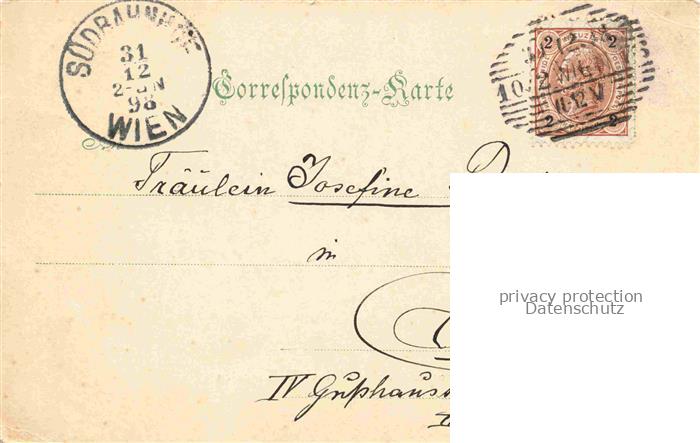 SÜDBAHNHOF
31
12
98
WIEN
Correspondenz-Karte
2 2
WIEN
10
11-12 V
2 2
An
Fräulein Josefine
in
IV Gußhauss
privacy protection
Datenschutz